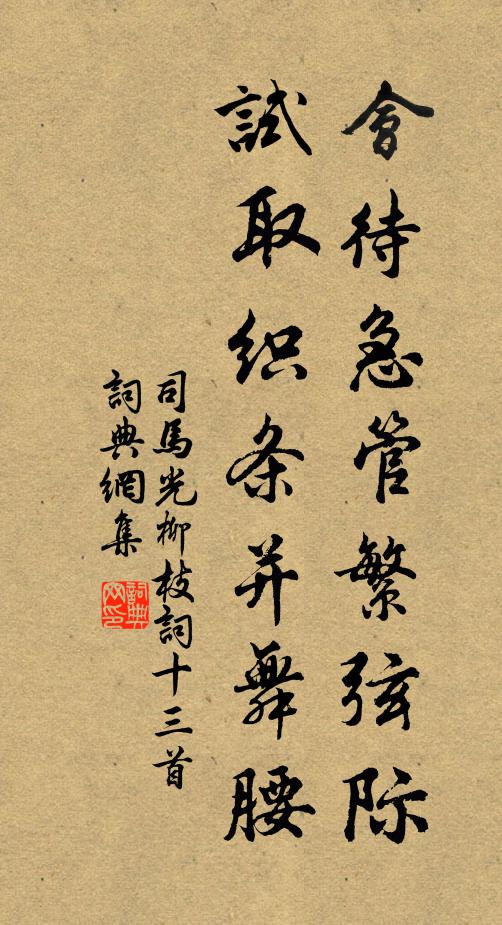 會待急管繁弦际
試取织条并舞腰
司馬光柳枝詞十三首
詞典網集
詞典網印